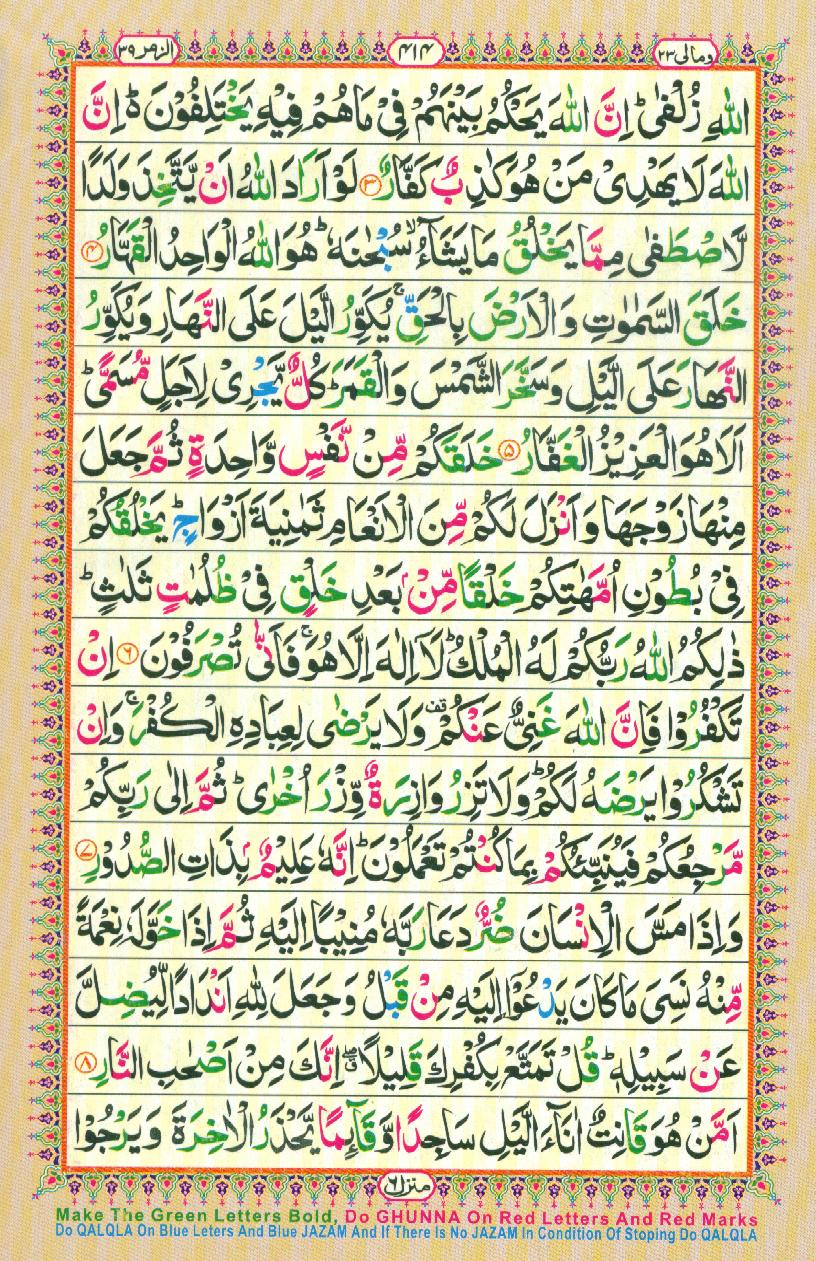 الزمر ٣٩ ٤١٤ ومالی ٢٣
اللّٰهِ زُلْفٰىؕ اِنَّ اللّٰهَ يَحْكُمُ بَيْنَهُمْ فِىْ مَا هُمْ فِيْهِ يَخْتَلِفُوْنَ ؕ۬ اِنَّ
اللّٰهَ لَا يَهْدِىْ مَنْ هُوَ كٰذِبٌ كَفَّارٌ ۝۳ لَوْ اَرَادَ اللّٰهُ اَنْ يَّتَّخِذَ وَلَدًا
لَّاصْطَفٰى مِمَّا يَخْلُقُ مَا يَشَآءُ ۙ سُبْحٰنَهٗ ؕ هُوَ اللّٰهُ الْوَاحِدُ الْقَهَّارُ ۝۴
خَلَقَ السَّمٰوٰتِ وَالْاَرْضَ بِالْحَقِّ ۚ يُكَوِّرُ الَّيْلَ عَلَى النَّهَارِ وَيُكَوِّرُ
النَّهَارَ عَلَى الَّيْلِ وَسَخَّرَ الشَّمْسَ وَالْقَمَرَ ؕ كُلٌّ يَّجْرِىْ لِاَجَلٍ مُّسَمًّى ؕ
اَلَا هُوَ الْعَزِيْزُ الْغَفَّارُ ۝۵ خَلَقَكُمْ مِّنْ نَّفْسٍ وَّاحِدَةٍ ثُمَّ جَعَلَ
مِنْهَا زَوْجَهَا وَاَنْزَلَ لَكُمْ مِّنَ الْاَنْعَامِ ثَمٰنِيَةَ اَزْوَاجٍ ؕ يَخْلُقُكُمْ
فِىْ بُطُوْنِ اُمَّهٰتِكُمْ خَلْقًا مِّنْۢ بَعْدِ خَلْقٍ فِىْ ظُلُمٰتٍ ثَلٰثٍ ؕ
ذٰلِكُمُ اللّٰهُ رَبُّكُمْ لَهُ الْمُلْكُ ؕ لَاۤ اِلٰهَ اِلَّا هُوَ ۚ فَاَنّٰى تُصْرَفُوْنَ ۝۶ اِنْ
تَكْفُرُوْا فَاِنَّ اللّٰهَ غَنِىٌّ عَنْكُمْ ۫ وَلَا يَرْضٰى لِعِبَادِهِ الْكُفْرَ ۚ وَاِنْ
تَشْكُرُوْا يَرْضَهُ لَكُمْ ؕ وَلَا تَزِرُ وَازِرَةٌ وِّزْرَ اُخْرٰى ؕ ثُمَّ اِلٰى رَبِّكُمْ
مَّرْجِعُكُمْ فَيُنَبِّئُكُمْ بِمَا كُنْتُمْ تَعْمَلُوْنَ ؕ اِنَّهٗ عَلِيْمٌۢ بِذَاتِ الصُّدُوْرِ ۝۷
وَاِذَا مَسَّ الْاِنْسَانَ ضُرٌّ دَعَا رَبَّهٗ مُنِيْبًا اِلَيْهِ ثُمَّ اِذَا خَوَّلَهٗ نِعْمَةً
مِّنْهُ نَسِىَ مَا كَانَ يَدْعُوْۤا اِلَيْهِ مِنْ قَبْلُ وَجَعَلَ لِلّٰهِ اَنْدَادًا لِّيُضِلَّ
عَنْ سَبِيْلِهٖ ؕ قُلْ تَمَتَّعْ بِكُفْرِكَ قَلِيْلًا ۖ اِنَّكَ مِنْ اَصْحٰبِ النَّارِ ۝۸
اَمَّنْ هُوَ قَانِتٌ اٰنَآءَ الَّيْلِ سَاجِدًا وَّقَآئِمًا يَّحْذَرُ الْاٰخِرَةَ وَيَرْجُوْا
منزل٦
Make The Green Letters Bold, Do GHUNNA On Red Letters And Red Marks
Do QALQLA On Blue Leters And Blue JAZAM And If There Is No JAZAM In Condition Of Stoping Do QALQLA